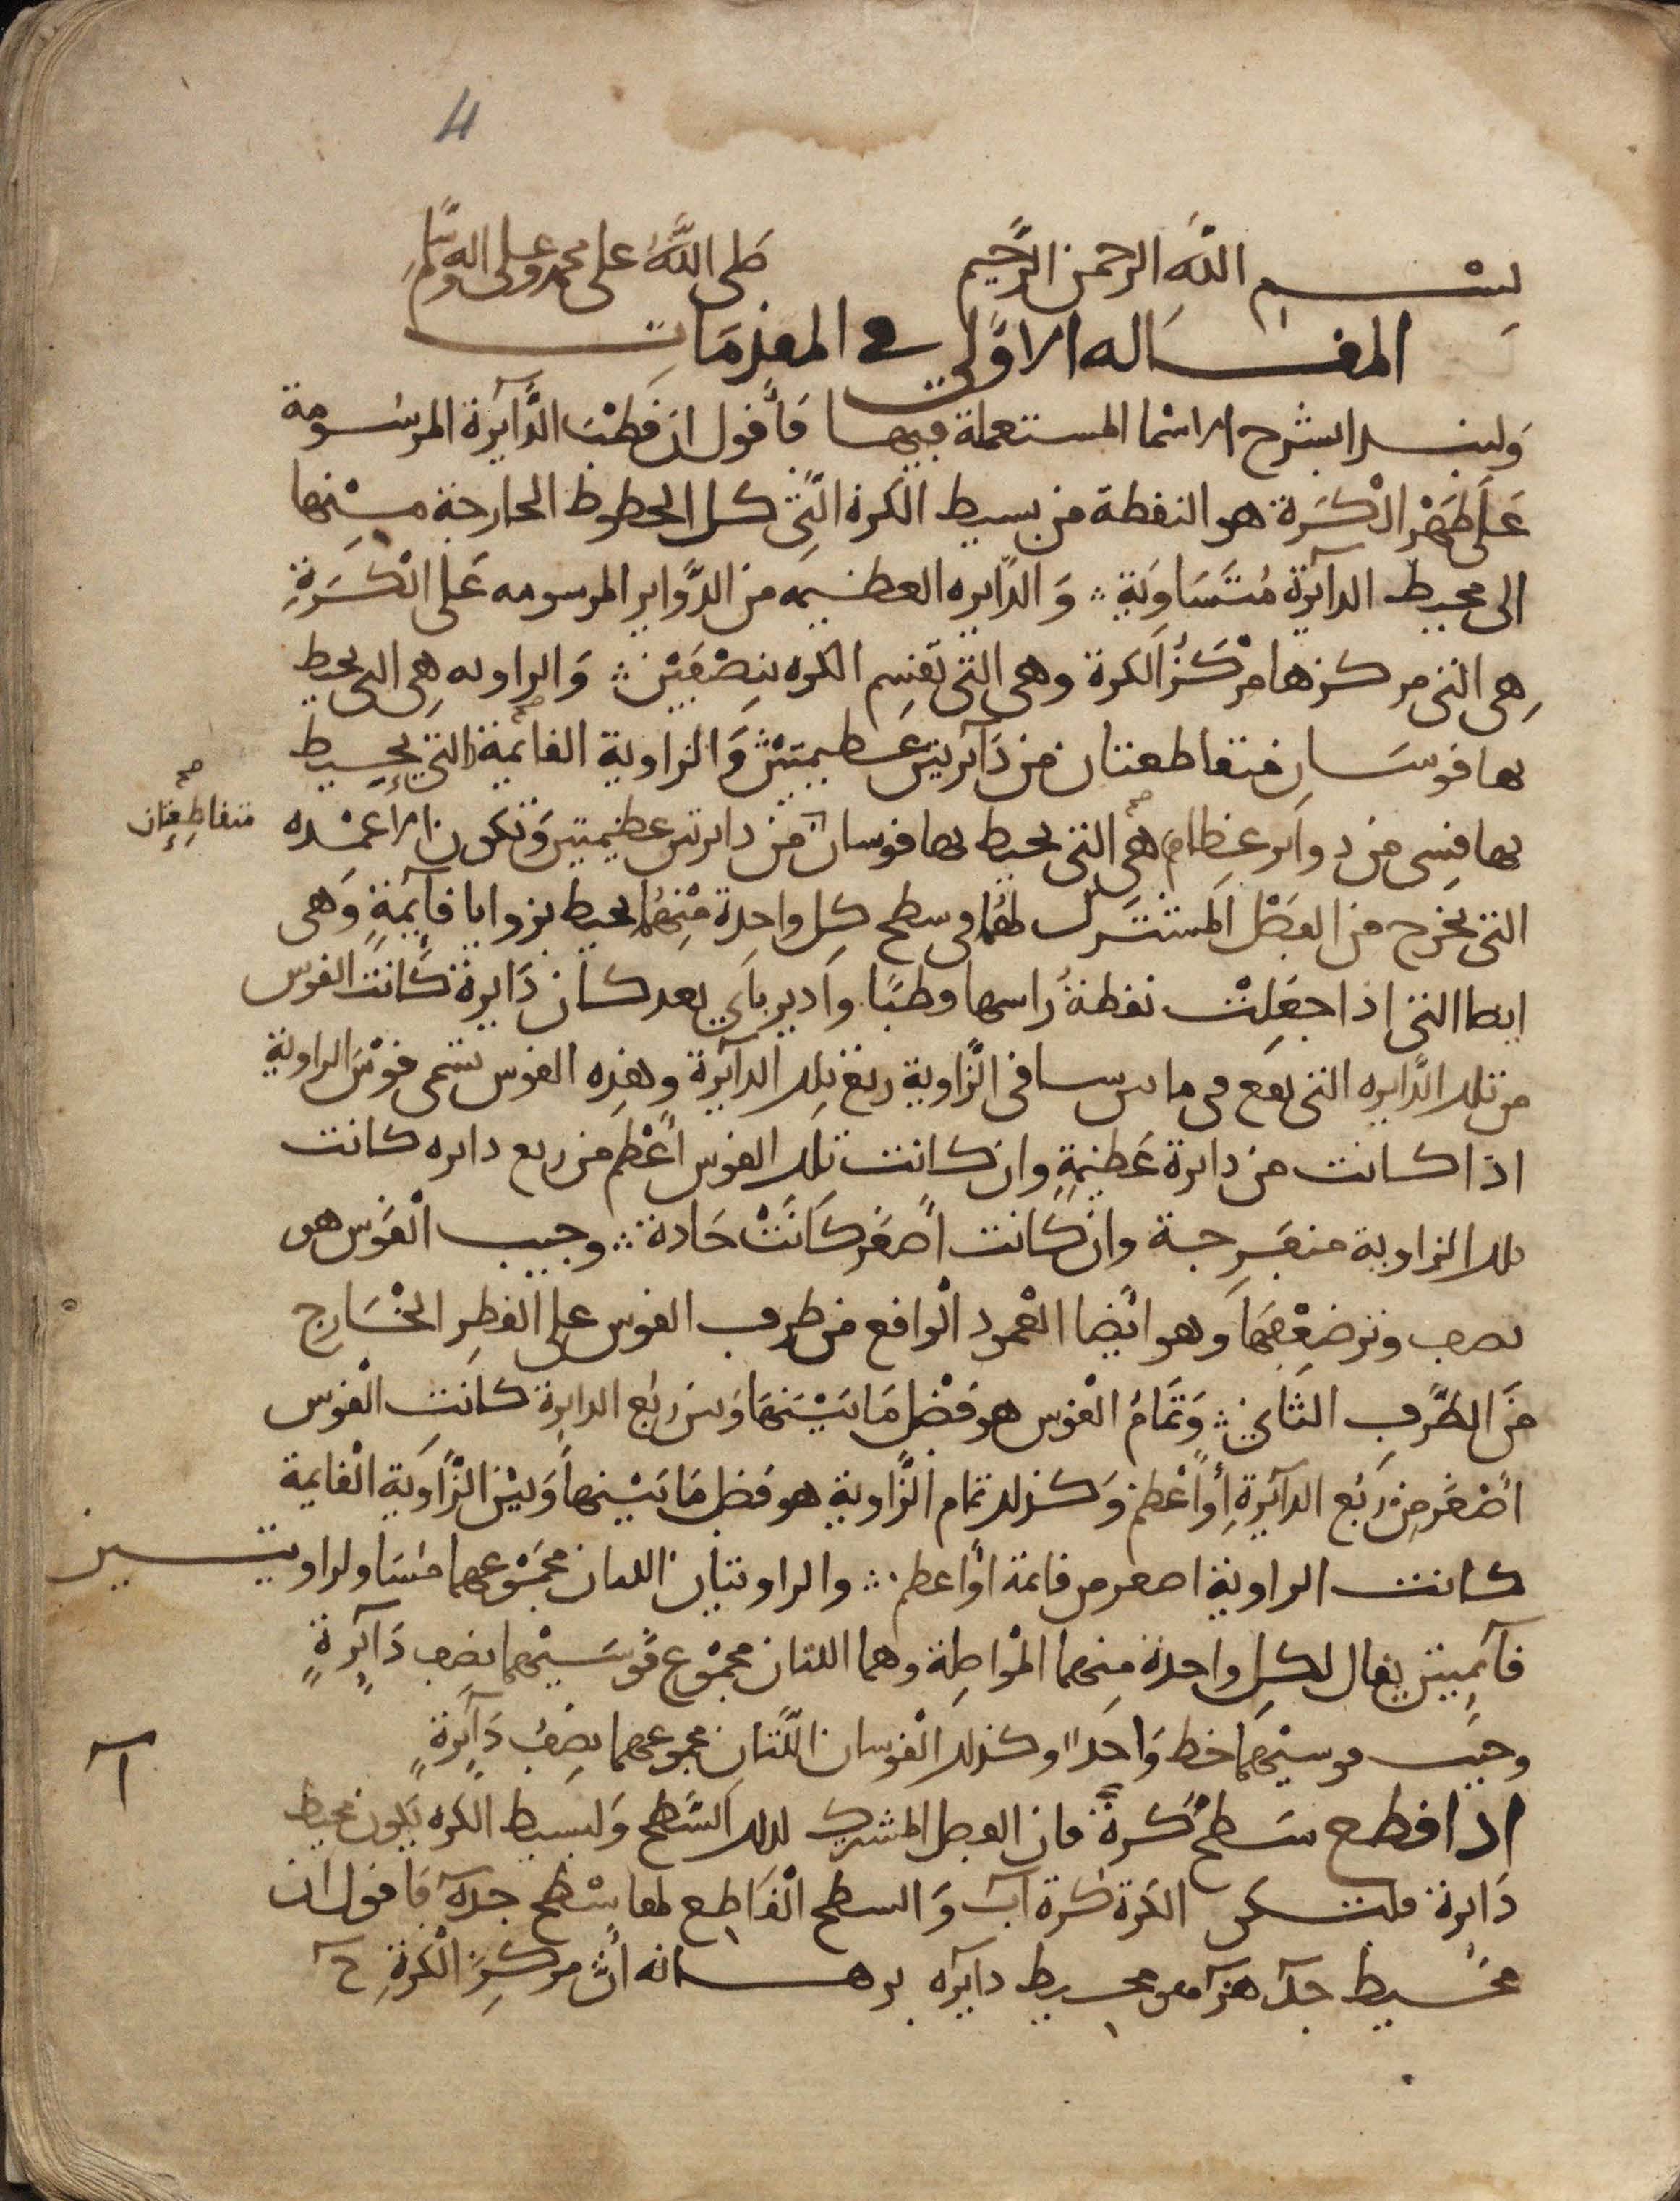 4
بسم الله الرحمن الرحيم صلى الله على محمد وعلى اله وسلم
المقاله الاولى في المقدمات
ولنبدا بشرح الاسما المستعملة فيها فأقول ان قطب الدآيرة المرسومة
على ظهر الكرة هو النقطة من بسيط الكرة التي كل الخطوط الخارجة منها
الى محيط الدآيرة متساوية ؞ والدايره العظيمه من الدواير المرسومه على الكرة
هي التي مركزها مركز الكرة وهي التي تقسم الكره بنصفين ؞ والزاويه هي التي يحيط
بها قوسان متقاطعتان من دآيرتين عظيمتين والزاوية القايمة التي يحيط
بها قسي من دواير عظام هي التي يحيط بها قوسان من دايرتين عظيمتين وتكون الاعمده
متقاطعتان صح
التي تخرج من الفصل المشترك لهما في سطح كل واحدة منهما يحيط بزوايا قايمة وهي
ايضا التي اذا جعلت نقطة راسها قطبا وادير باي بعد كان دايرة كانت القوس
من تلك الدايره التي تقع في ما بين ساقى الزاوية ربع تلك الدآيرة وهذه القوس تسمى قوس الزاوية
اذا كانت من دايرة عظيمة وان كانت تلك القوس أعظم من ربع دايره كانت
تلك الزاوية منفرجة وان كانت أصغر كانت حادة ؞ وجيب القوس هو
نصف وتر ضعفها وهو ايضا العمود الواقع من طرف القوس على القطر الخارج
من الطرف الثاني ؞ وتمام القوس هو فضل ما بينها وبين ربع الدايرة كانت القوس
أصغر من ربع الدآيرة أو أعظم وكذلك تمام الزاوية هو فضل ما بينها وبين الزاوية القايمة
كانت الزاوية اصغر من قايمة او أعظم ؞ والزاويتان اللتان مجموعهما مساو لزاويتين
قآيمتين يقال لكل واحدة منهما المواصلة وهما اللتان مجموع قوسيهما نصف دآيرة
وجيب قوسيهما خط واحدا وكذلك القوسان اللتان مجموعهما نصف دآيرة
آ
اذا قطع سطح كرة فان الفصل المشترك لذلك السطح ولبسيط الكره يكون محيط
دايرة فلتكن الكرة كرة اب والسطح القاطع لها سطح جده فاقول ان
محيط جد هو محيط دايره برهانه أن مركز الكرة ح